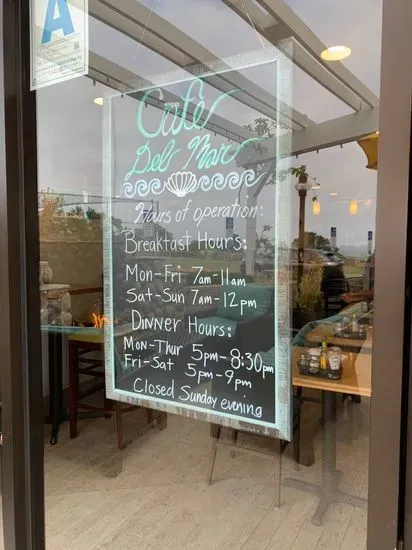 A
Café
Del Mar
Hours of operation:
Breakfast Hours:
Mon-Fri 7am-11am
Sat-Sun 7am-12pm
Dinner Hours:
Mon-Thur 5pm-8:30pm
Fri-Sat 5pm-9pm
Closed Sunday evening